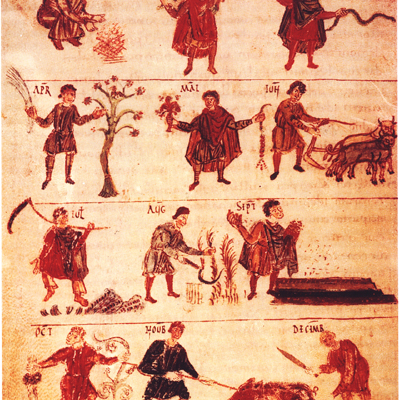 APR MAI IVN
IVL AVG SEPT
OCT NOUB DECEMB